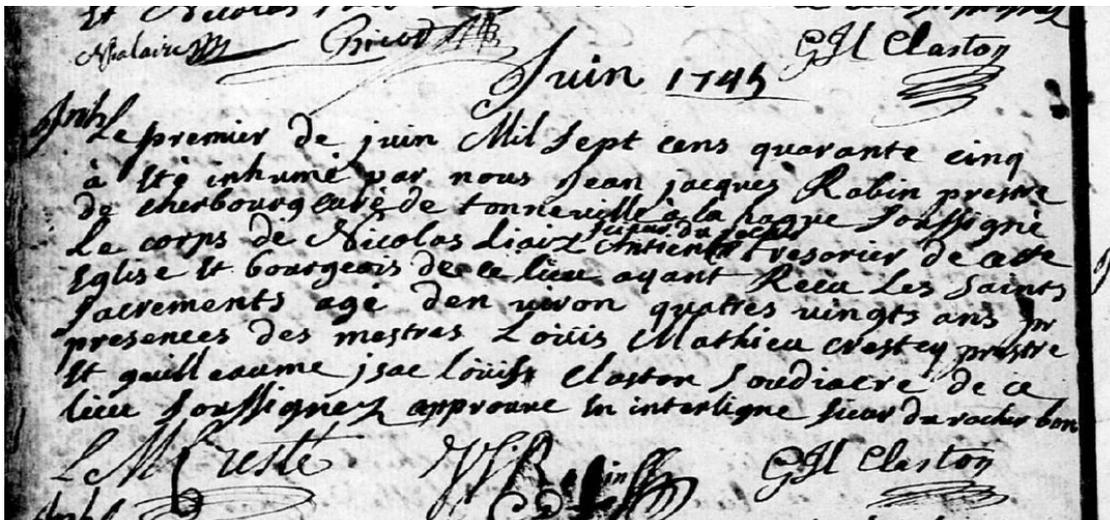 et Nicolas
GJL Claston
Juin 1745
Inh
Le premier de juin Mil Sept cens quarante cinq
à Eté inhumé par nous Jean jacques Rabin prestre
de cherbourg curé de tonneville à la hague Soussigné
sieur du rocher
Le corps de Nicolas Liaiz Antien Tresorier de cette
Eglise Et bourgeois de ce lieu ayant Recu Les Saints
Sacrements agé den viron quatres vingts ans pr
presences des mestres Loüis Mathieu crestey prestre
Et guilleaume jsac loüis Claston Soudiacre de ce
lieu Soussignez approuve En interligne sieur du rocher bon
L M Cresté
GJL Claston
Inh